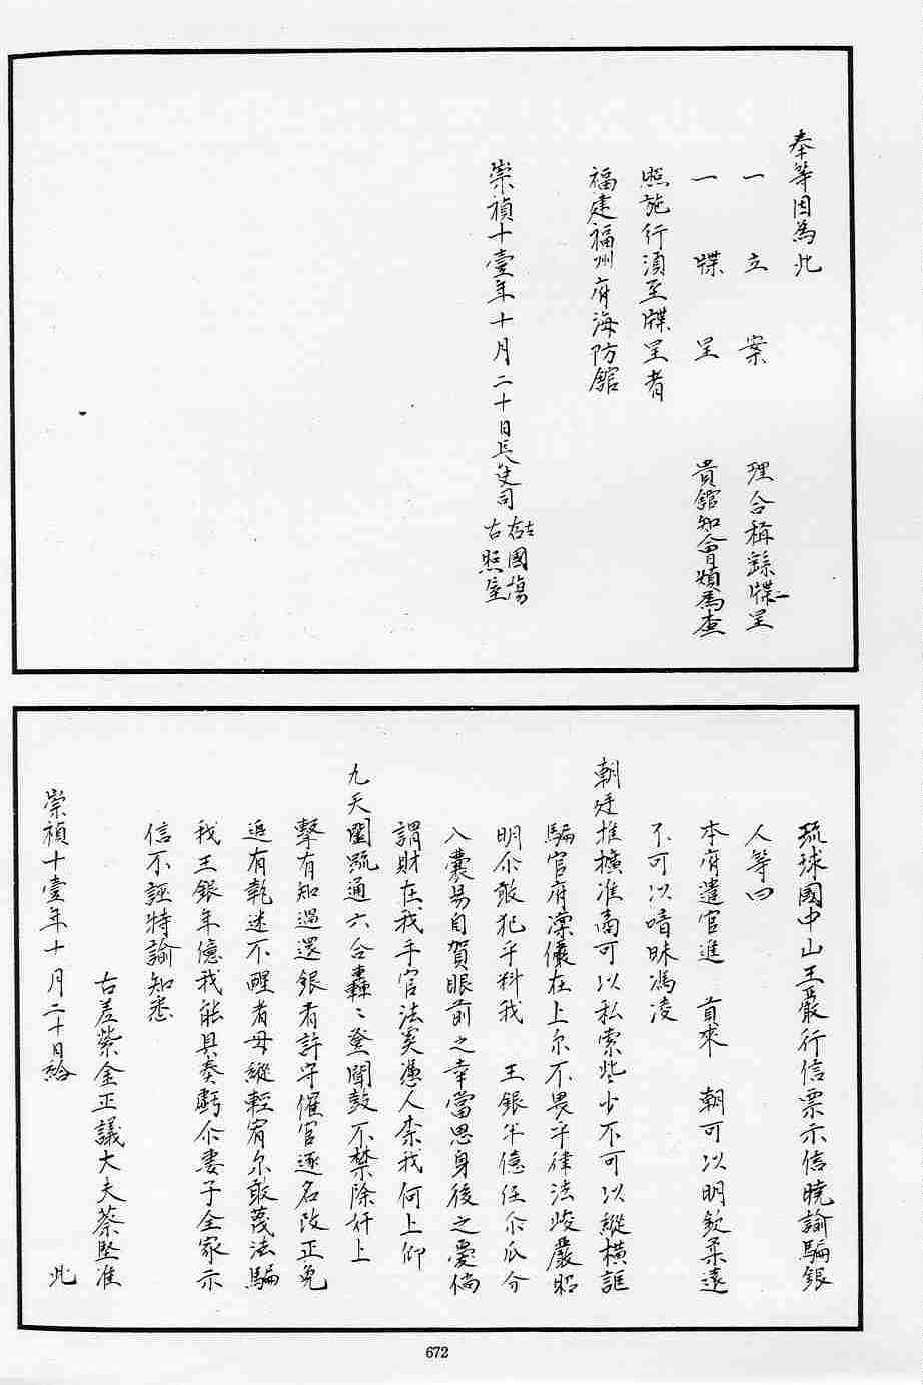 奉等因為此
一立案　理合稱錄牒呈
一牒呈　貴舘知會煩為查
照施行須至牒呈者
福建福州府海防舘
崇禎十壹年十月二十日長史司
左國場
右照屋
琉球國中山王嚴行信票示信曉諭騙銀
人等四
本府遣官進　貢來　朝可以明欽柔遠
不可以暗昧馮凌
朝廷推擴准商可以私索些少不可以縱橫誆
騙官府凜儼在上尔不畏乎律法峻嚴昭
明尒敢犯乎料我　王銀年億任尒瓜分
入囊易自賀眼前之幸當思身後之憂倘
謂財在我手官法奚憑人柰我何上仰
九天闔疏通六合轟〻登聞鼓不禁除奸上
擊有知過還銀者許守催官逐名改正免
追有執迷不醒者毋縱輕宥尔敢蔑法騙
我王銀年億我能具奏虧尒妻子全家示
信不誣特諭知悉
右差紫金正議大夫蔡堅准
崇禎十壹年十月二十日給　此
672